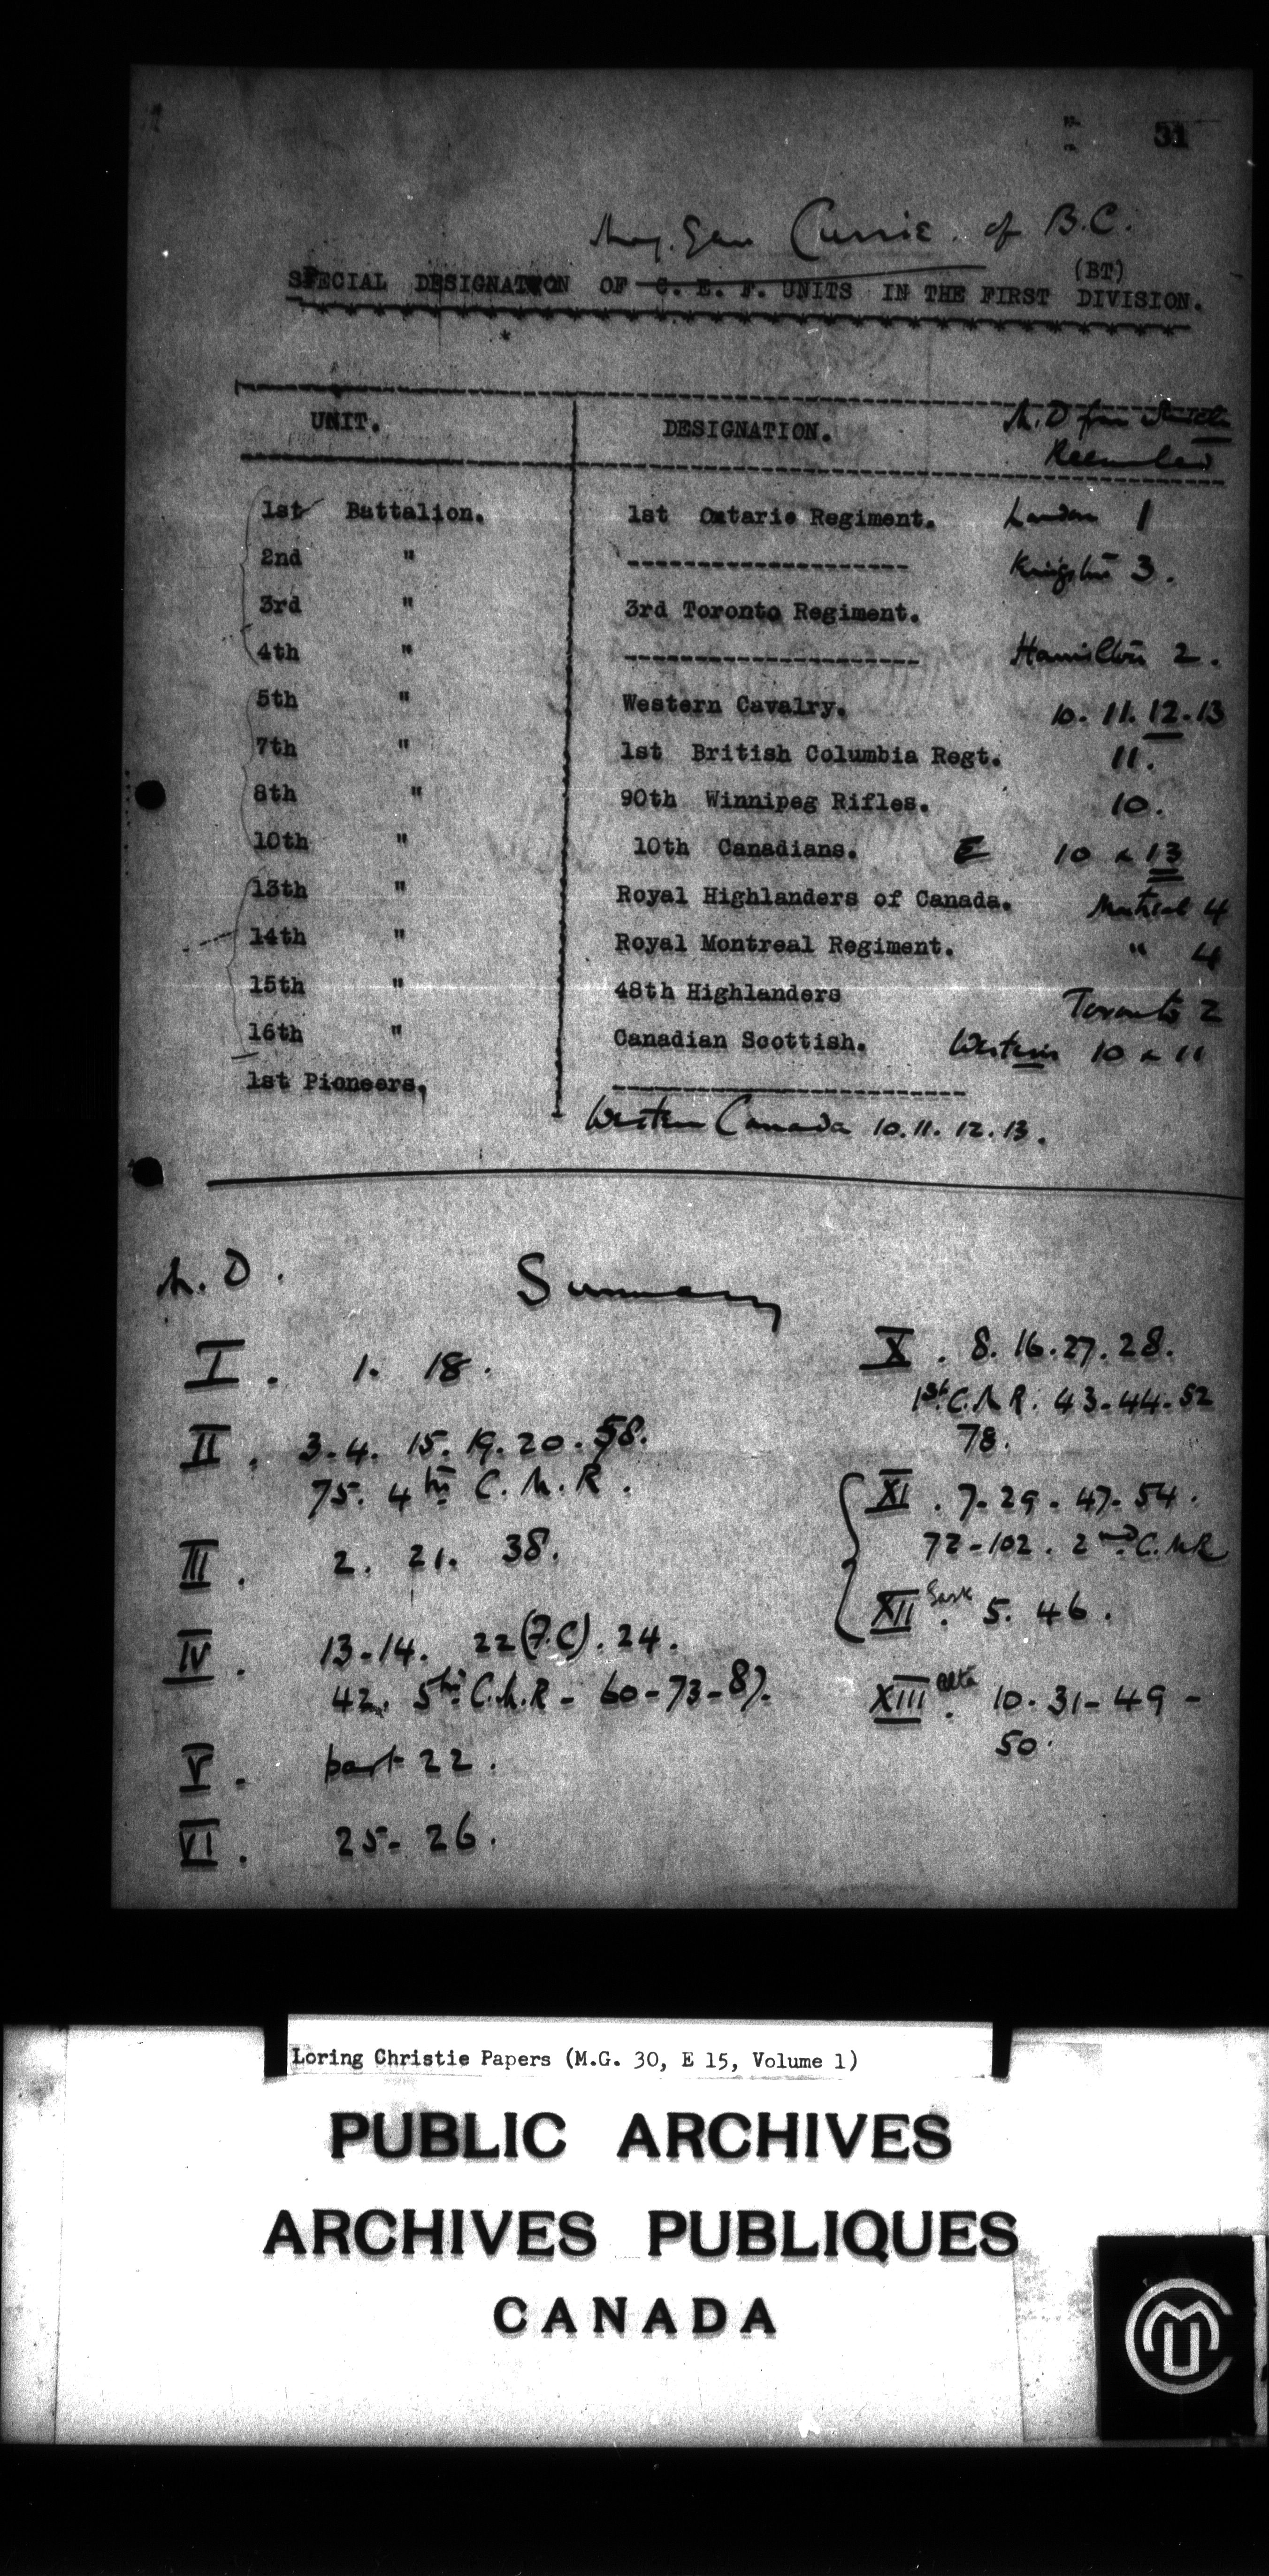 31
Maj. Gen Currie. of B.C.
(BT)
SPECIAL DESIGNATION OF C. E. F. UNITS IN THE FIRST DIVISION.
UNIT. DESIGNATION. M. D from which
Recruited
1st Battalion. 1st Ontario Regiment. London 1
2nd " -------------------- Kingston 3.
3rd " 3rd Toronto Regiment.
4th " -------------------- Hamilton 2.
5th " Western Cavalry. 10. 11. 12. 13
7th " 1st British Columbia Regt. 11.
8th " 90th Winnipeg Rifles. 10.
10th " 10th Canadians. E 10 & 13
13th " Royal Highlanders of Canada. Montreal 4
14th " Royal Montreal Regiment. " 4
15th " 48th Highlanders Toronto 2
16th " Canadian Scottish. Western 10 & 11
1st Pioneers, -------------------------
Western Canada 10. 11. 12. 13.
M. D. Summary
I. 1. 18.
II. 3-4. 15. 19. 20. 58.
75. 4th C. M. R.
III. 2. 21. 38.
IV. 13-14. 22 (F.C). 24.
42. 5th C.M.R - 60-73-87.
V. part 22.
VI. 25- 26.
X. 8. 16. 27. 28.
1st C.M R. 43-44-52
78.
XI. 7-29-47-54.
72-102. 2nd C.MR
XII Sask. 5. 46.
XIII Alta. 10-31-49-
50.
Loring Christie Papers (M.G. 30, E 15, Volume 1)
PUBLIC ARCHIVES
ARCHIVES PUBLIQUES
CANADA